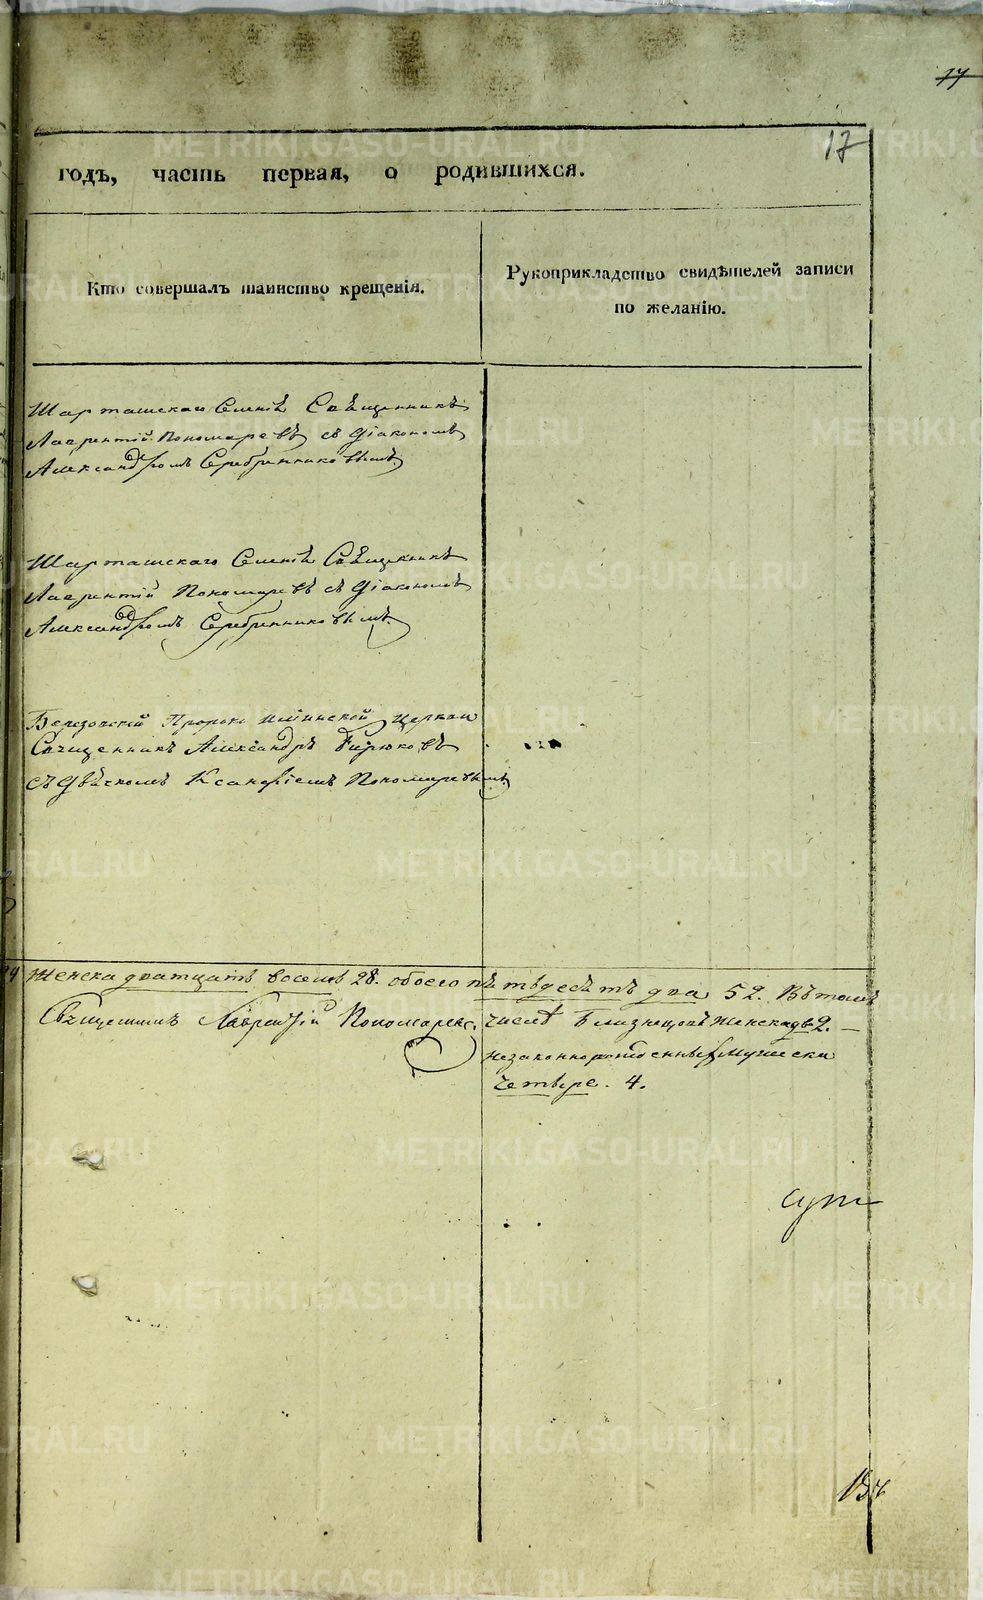 17
17
годъ, часть первая, о родившихся.
Кто совершалъ таинство крещенія.
Рукоприкладство свидѣтелей записи
по желанію.
Шарташскаго Селенiѣ Священникъ
Лаврентій Пономаревъ съ Діакономъ
Александромъ Серебренниковымъ.
Шарташскаго Селенiѣ Священникъ
Лаврентій Пономаревъ съ Діакономъ
Александромъ Серебренниковымъ
Березовскій Пророко Ильинской Церкви
Священникъ Александръ Бирюковъ
съ Дьячкомъ Ксанфіемъ Пономаревымъ.
Женска дватцать восемь 28. обоего пѣтьдесѣтъ два 52. Въ томъ
Священникъ Лаврентій Пономаревъ.
числѣ Близнецовъ Женска два 2.
незаконнорожденныхъ Мужески
четыре. 4.
METRIKI.GASO-URAL.RU